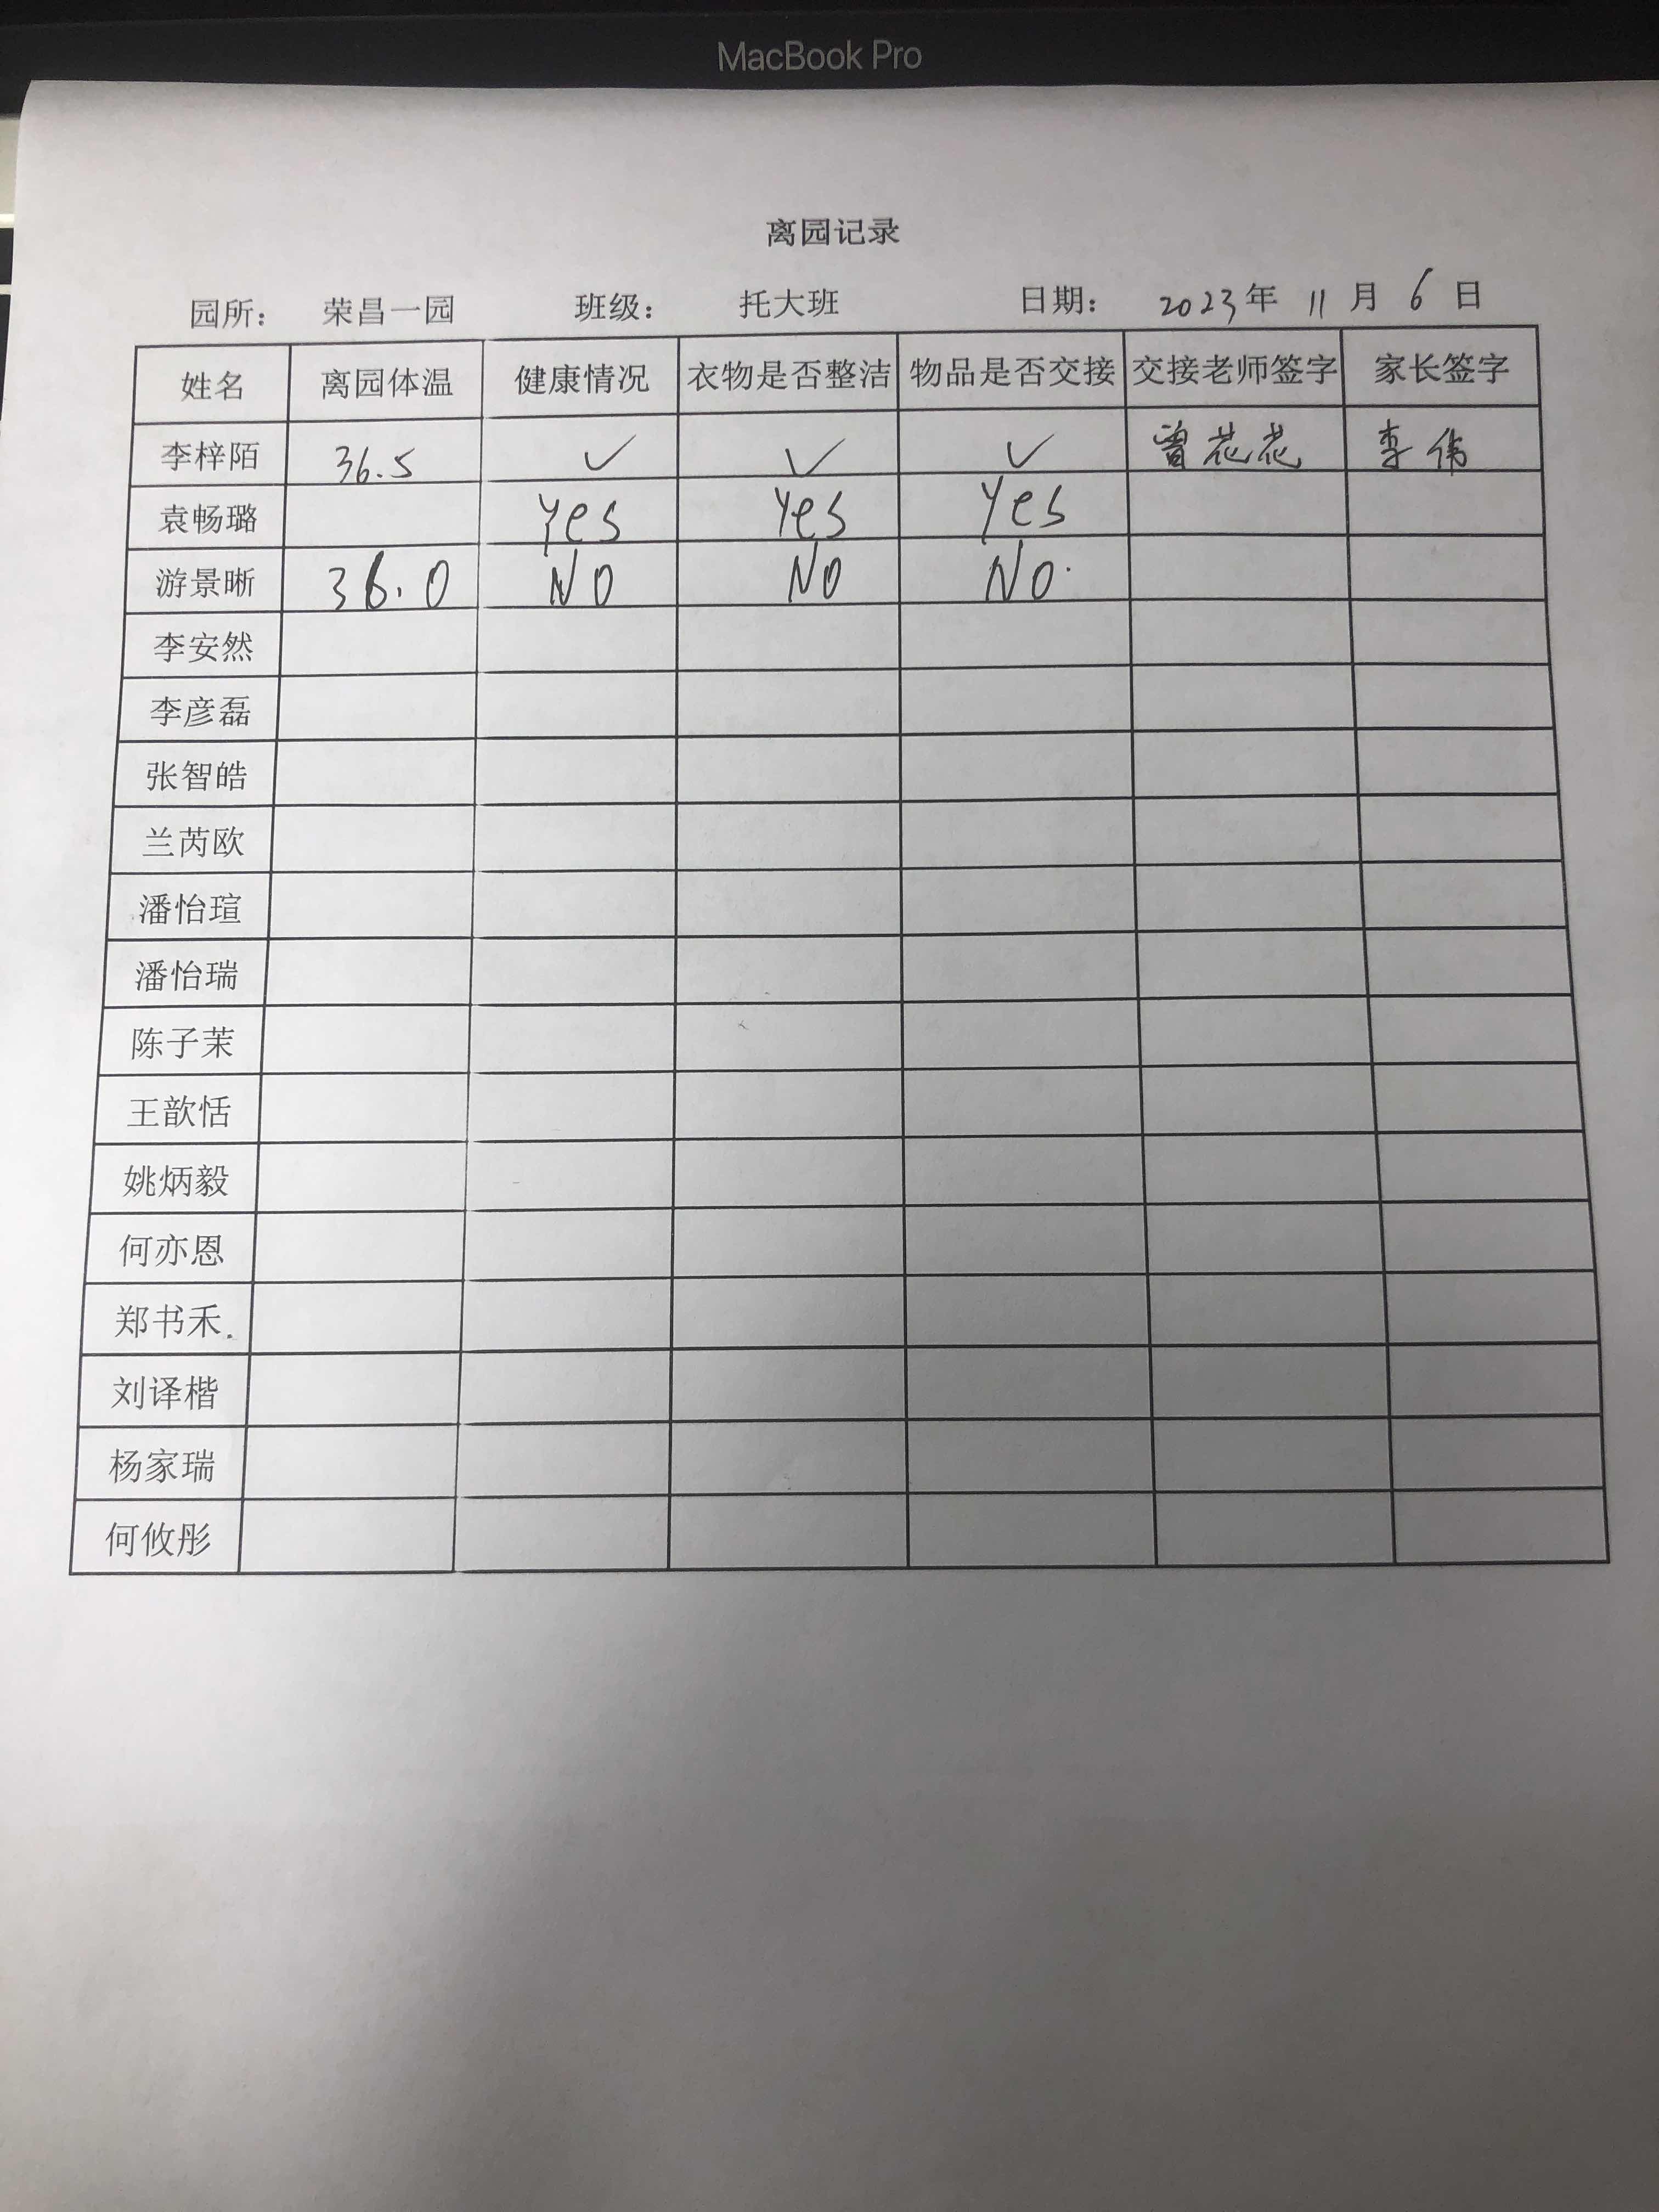 MacBook Pro
离园记录
园所： 荣昌一园 班级： 托大班 日期： 2023年 11 月 6 日
姓名 离园体温 健康情况 衣物是否整洁 物品是否交接 交接老师签字 家长签字
李梓陌 36.5 ✓ ✓ ✓ 曾花花 李伟
袁畅璐 Yes Yes Yes
游景晰 36.0 NO NO NO.
李安然
李彦磊
张智皓
兰芮欧
潘怡瑄
潘怡瑞
陈子茉
王歆恬
姚炳毅
何亦恩
郑书禾
刘译楷
杨家瑞
何攸彤